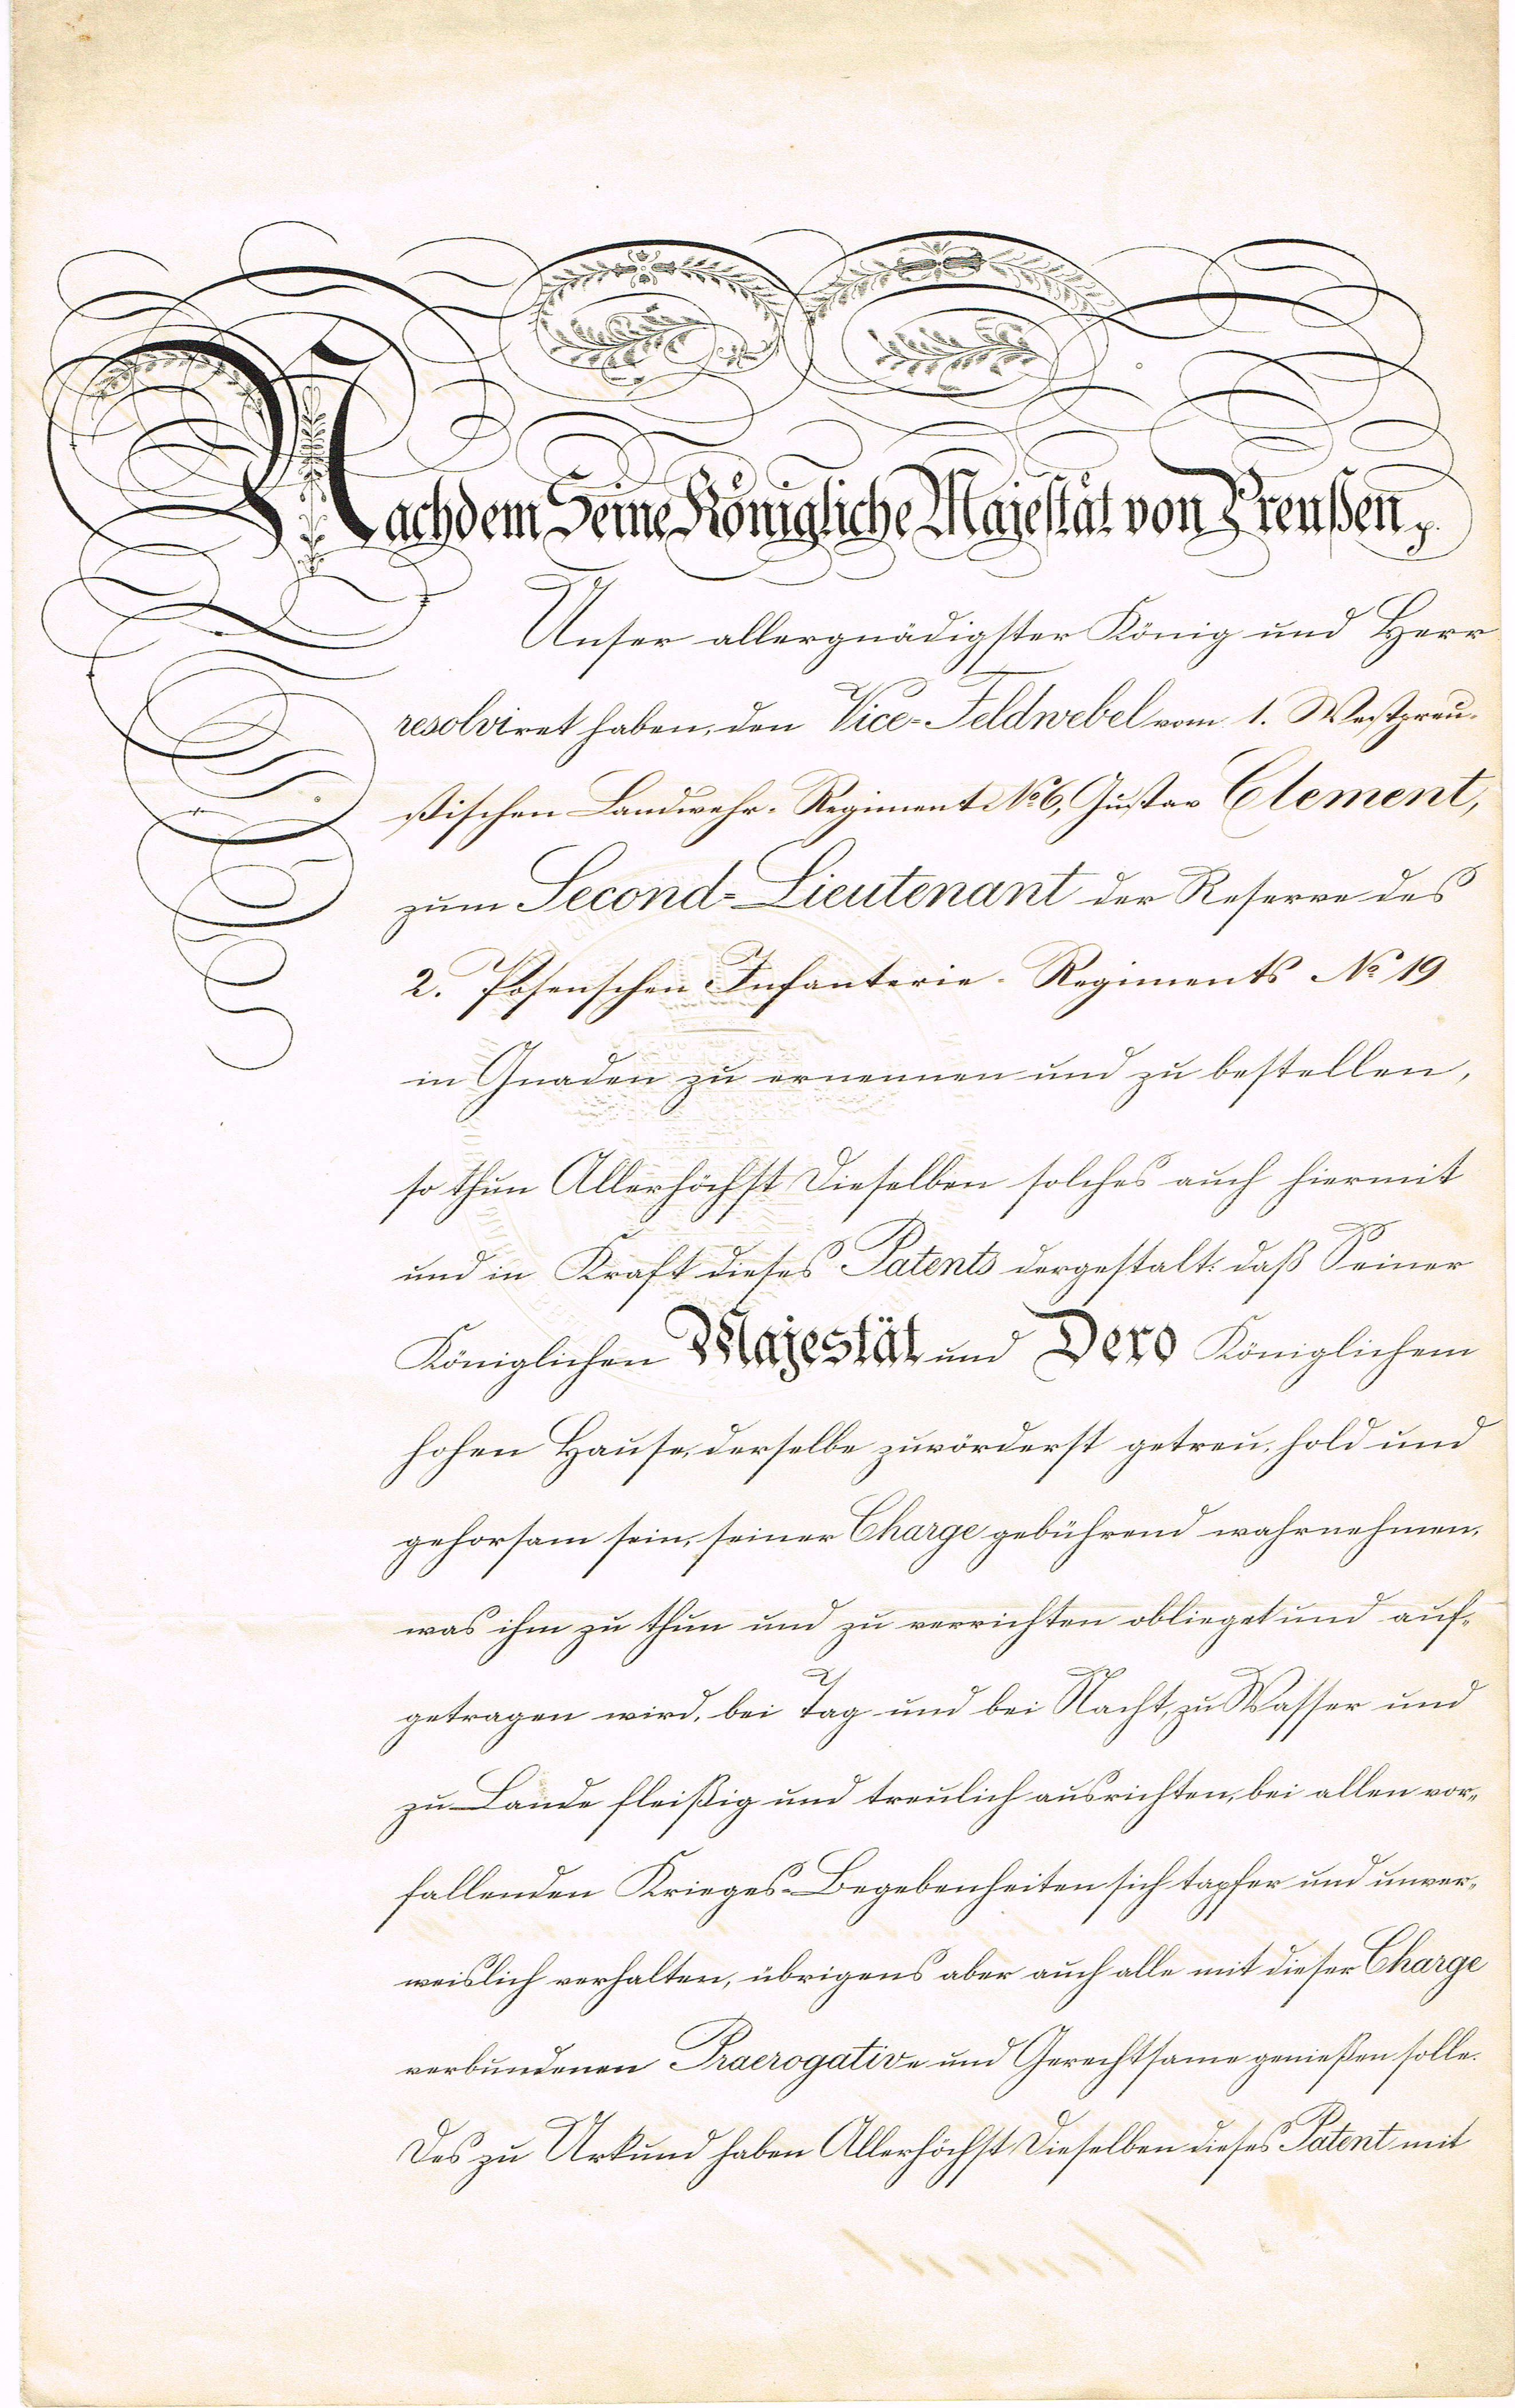 Nachdem Seine Königliche Majestät von Preußen p.
Unser allergnädigster König und Herr
resolviret haben, den Vice-Feldwebel vom 1. Westpreu-
ßischen Landwehr-Regiment No 6, Gustav Clement,
zum Second-Lieutenant der Reserve des
2. Posenschen Infanterie-Regiments No 19
in Gnaden zu ernennen und zu bestellen,
so thun Allerhöchst Dieselben solches auch hiermit
und in Kraft dieses Patents dergestalt: daß Seiner
Königlichen Majestät und Dero Königlichem
hohen Hause, derselbe zuvörderst getreu, hold und
gehorsam sein, seiner Charge gebührend wahrnehmen,
was ihm zu thun und zu verrichten oblieget und auf-
getragen wird, bei Tag und bei Nacht, zu Wasser und
zu Lande fleißig und treulich ausrichten, bei allen vor-
fallenden Krieges-Begebenheiten sich tapfer und unver-
weislich verhalten, übrigens aber auch alle mit dieser Charge
verbundenen Praerogative und Gerechtsame genießen solle.
Des zu Urkund haben Allerhöchst Dieselben dieses Patent mit